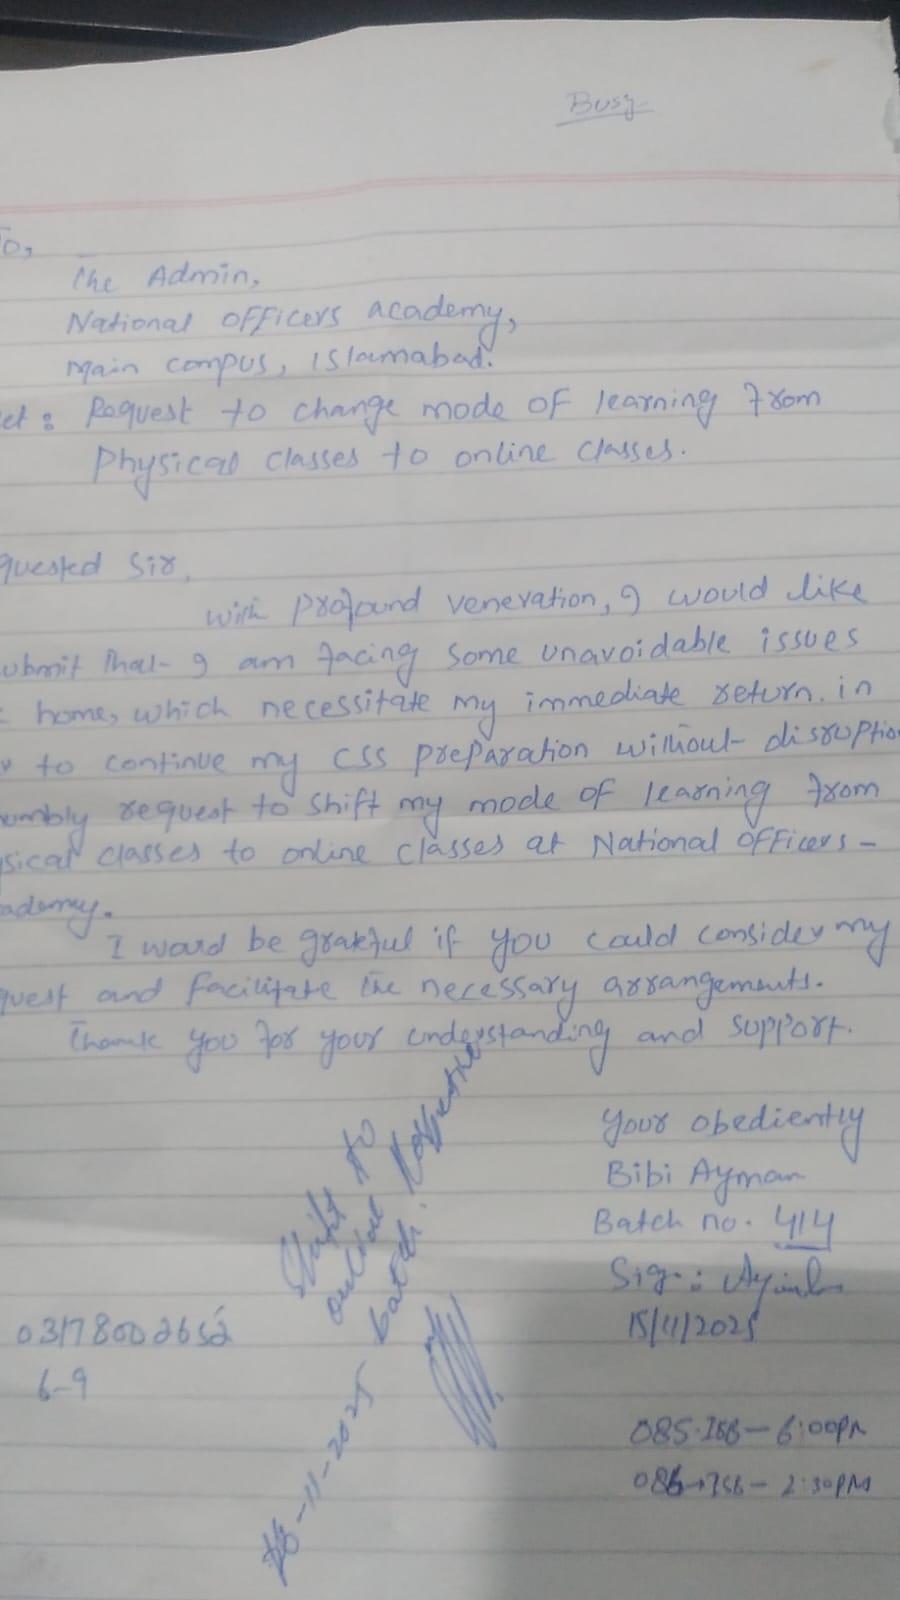 Busy
To,
The Admin,
National officers academy,
main compus, islamabad.
ct : Request to change mode of learning from
Physical classes to online classes.
quested Sir,
with profound veneration, I would like
ubmit that I am facing some unavoidable issues
home, which necessitate my immediate return. in
to continue my CSS preparation without disruptio
umbly request to shift my mode of learning from
sical classes to online classes at National officers -
ademy.
I would be grateful if you could consider my
quest and facilitate the necessary arrangements.
Thank you for your understanding and support.
Your obediently
Bibi Ayman
Batch no. 414
Sig. :
15/11/2025
Shift to
online
batch.
-11-2025
6-9
085-ISB - 6:00PM
086-ISB - 2:30PM